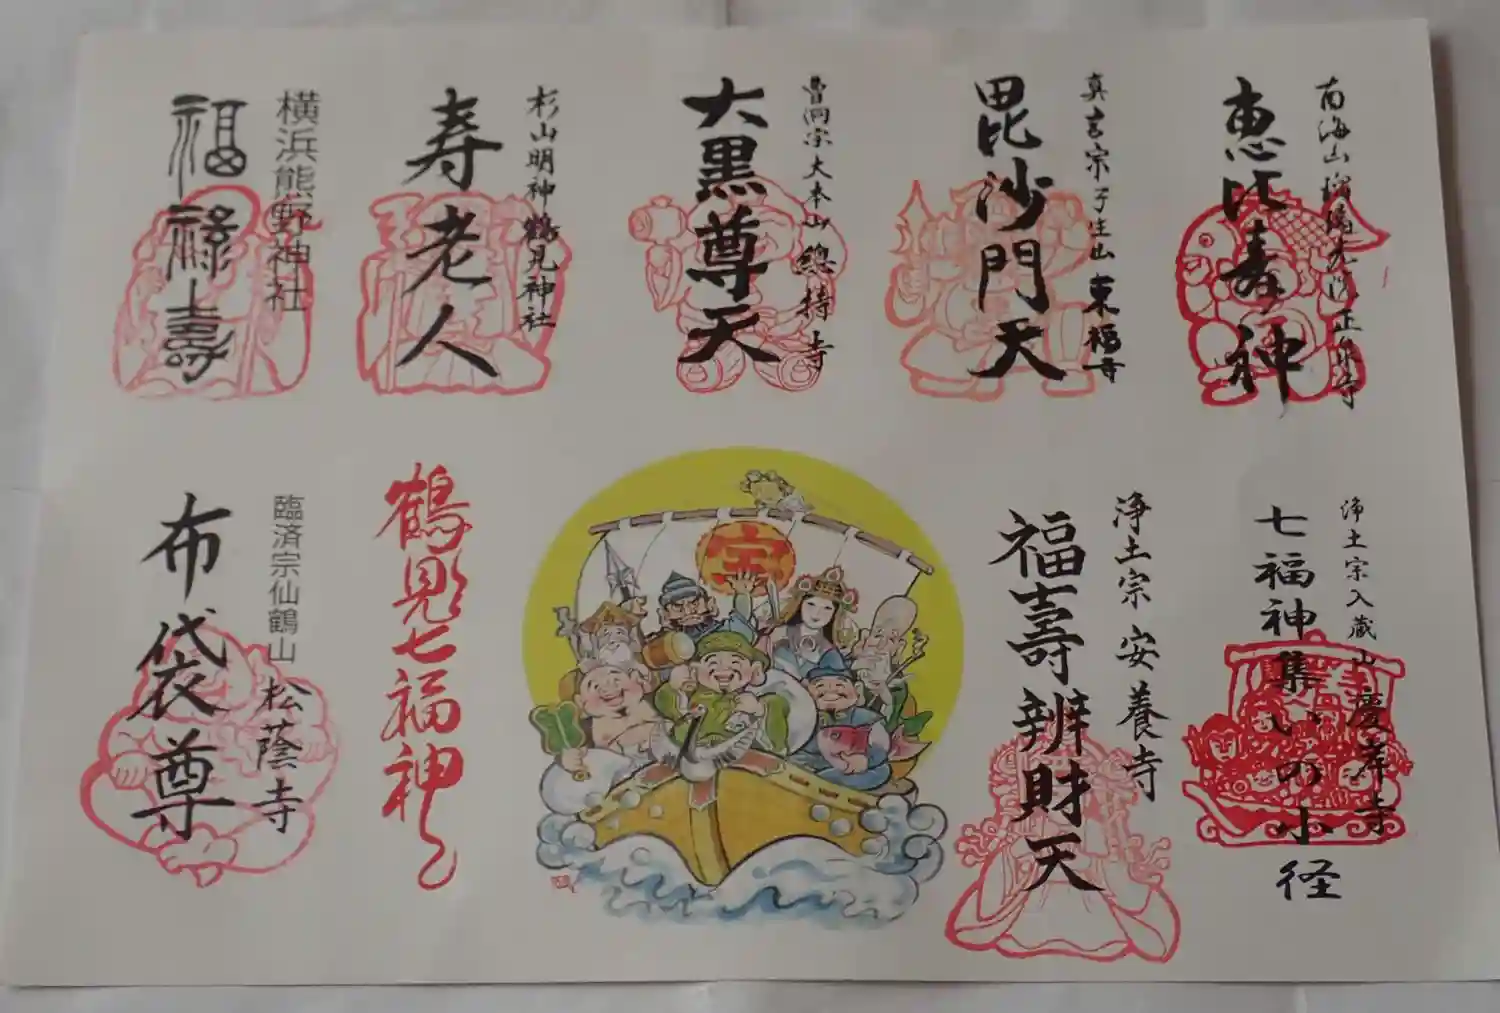 南海山瑠璃光院正泉寺
恵比寿神
真言宗子生山東福寺
毘沙門天
曹洞宗大本山總持寺
大黒尊天
杉山明神鶴見神社
寿老人
横浜熊野神社
福禄壽
浄土宗入蔵山慶岸寺
七福神集いの小径
浄土宗安養寺
福壽辨財天
宝
鶴見七福神
臨済宗仙鶴山松蔭寺
布袋尊